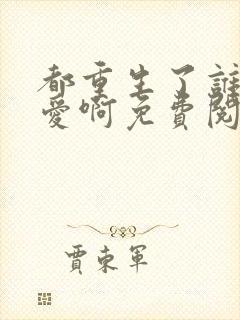 都重生了誰
愛啊免費閱
賈東軍